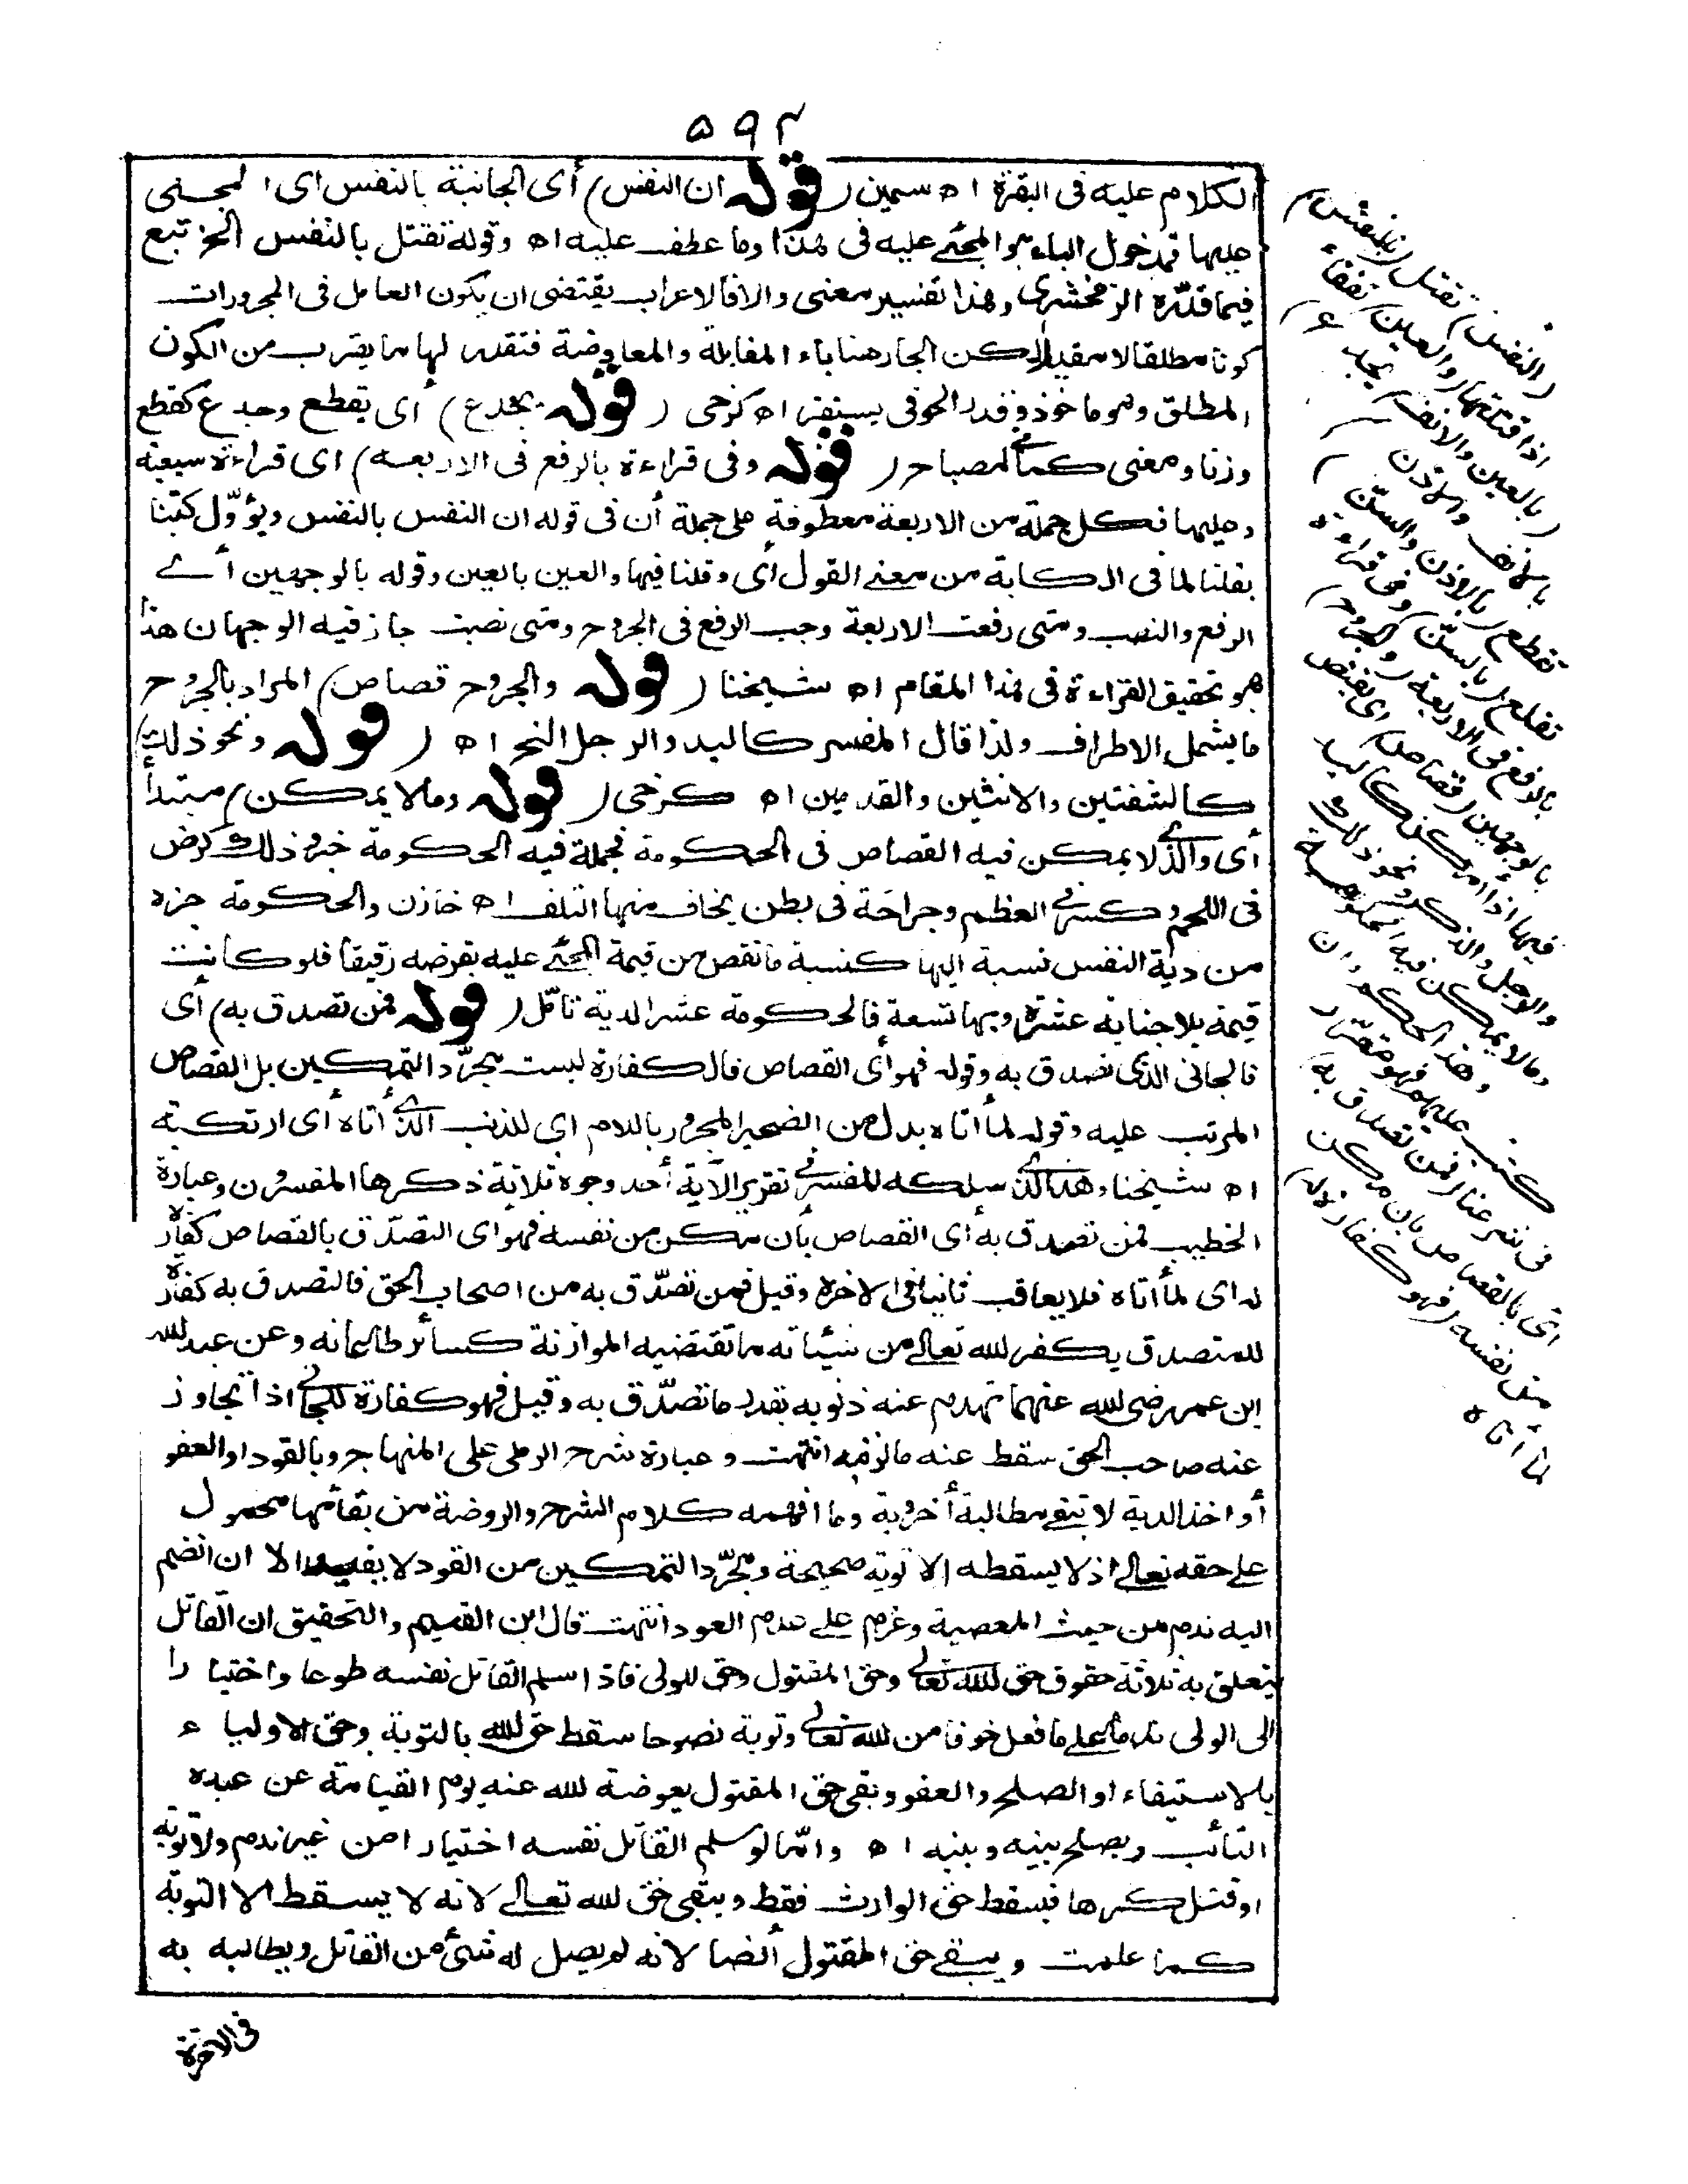 ٥٩٢
الكلام عليه فى البقرة اه سمين (قوله ان النفس) أى الجانية بالنفس اى المجنى
عليها فمدخول الباء هو المجنى عليه فى هذا وما عطف عليه اه وقوله تقتل بالنفس الخ تبع
فيما قدّره الزمخشرى وهذا تفسير معنى والا فالاعراب يقتضى ان يكون العامل فى المجرورات
كونا مطلقا لا مقيدا لكن الجار هنا باء المقابلة والمعاوضة فتقدر لها ما يقرب من الكون
المطلق وهو ماخوذ وقدر الحوفى يستقر اه كرخى (قوله يجدع) أى يقطع وجدع كقطع
وزنا ومعنى كما فى المصباح (قوله وفى قراءة بالرفع فى الاربعة) اى قراءة سبعية
وعليها فكل جملة من الاربعة معطوفة على جملة أن فى قوله ان النفس بالنفس ويؤوّل كتبنا
بقلنا لما فى الكتابة من معنى القول أى وقلنا فيها والعين بالعين وقوله بالوجهين أى
الرفع والنصب ومتى رفعت الاربعة وجب الرفع فى الجروح ومتى نصبت جاز فيه الوجهان هذا
هو تحقيق القراءة فى هذا المقام اه شيخنا (قوله والجروح قصاص) المراد بالجروح
ما يشمل الاطراف ولذا قال المفسر كاليد والرجل الخ اه (قوله ونحو ذلك)
كالشفتين والانثيين والقدمين اه كرخى (قوله وما لا يمكن) مبتدأ
أى والذى لا يمكن فيه القصاص فى الحكومة فجملة فيه الحكومة خبر وذلك كرض
فى اللحم وكسر فى العظم وجراحة فى بطن يخاف منها التلف اه خازن والحكومة جزء
من دية النفس نسبة اليها كنسبة ما نقص من قيمة المجنى عليه بفرضه رقيقا فلو كانت
قيمة بلا جناية عشرة وبها تسعة فالحكومة عشر الدية تأمّل (قوله فمن تصدق به) أى
فالجانى الذى تصدق به وقوله فهو أى القصاص فالكفارة ليست بمجرّد التمكين بل القصاص
المرتب عليه وقوله لما أتاه بدل من الضمير المجرور باللام اى للذنب الذى أتاه أى ارتكبه
اه شيخنا وهذا الذى سلكه المفسر فى تقرير الآية أحد وجوه ثلاثة ذكرها المفسرون وعبارة
الخطيب فمن تصدق به أى القصاص بأن مكن من نفسه فهو اى التصدّق بالقصاص كفارة
له اى لما أتاه فلا يعاقب ثانيا فى الاخرة وقيل فمن تصدّق به من اصحاب الحق فالتصدق به كفارة
للمتصدق يكفر الله تعالى من سيئاته ما تقتضيه الموازنة كسائر طاعاته وعن عبدالله
ابن عمر رضى الله عنهما تهدم عنه ذنوبه بقدر ما تصدّق به وقيل فهو كفارة للجانى اذا تجاوز
عنه صاحب الحق سقط عنه ما لزمه انتهت وعبارة شرح الرملى على المنهاج وبالقود او العفو
أو اخذ الدية لا تبقى مطالبة أخروية وما افهمه كلام الشرح والروضة من بقائها محمول
على حقه تعالى اذ لا يسقطه الا توبة صحيحة ومجرّد التمكين من القود لا يفيد الا ان انضم
اليه ندم من حيث المعصية وعزم على عدم العود انتهت قال ابن القيم والتحقيق ان القاتل
يتعلق به ثلاثة حقوق حق لله تعالى وحق المقتول وحق للولى فاذا اسلم القاتل نفسه طوعا واختيارا
الى الولى ندما على ما فعل خوفا من الله تعالى وتوبة نصوحا سقط حق الله بالتوبة وحق الاولياء
بالاستيفاء او الصلح والعفو وبقى حق المقتول يعوضه الله عنه يوم القيامة عن عبده
التائب ويصلح بينه وبينه اه وامّا لو سلم القاتل نفسه اختيارا من غير ندم ولا توبة
او قتل كرها فيسقط حق الوارث فقط ويبقى حق الله تعالى لانه لا يسقط الا التوبة
كما علمت ويبقى حق المقتول أيضا لانه لم يصل له شئ من القاتل ويطالبه به
فى الآخرة
(النفس) تقتل (بالنفس)
اذا قتلتها (والعين) تفقأ
(بالعين والانف) يجدع
(بالانف والاذن)
تقطع (بالاذن والسنّ)
تقلع (بالسنّ) وفى قراءة
بالرفع فى الاربعة (والجروح)
بالوجهين (قصاص) اى يقتص
فيها اذا أمكن كاليد
والرجل والذكر ونحو ذلك
وما لا يمكن فيه الحكومة
وهذا الحكم وان
كتب عليهم فهو مقرّر
فى شرعنا (فمن تصدق به)
اى بالقصاص بان مكن
من نفسه (فهو كفارة له)
لما أتاه